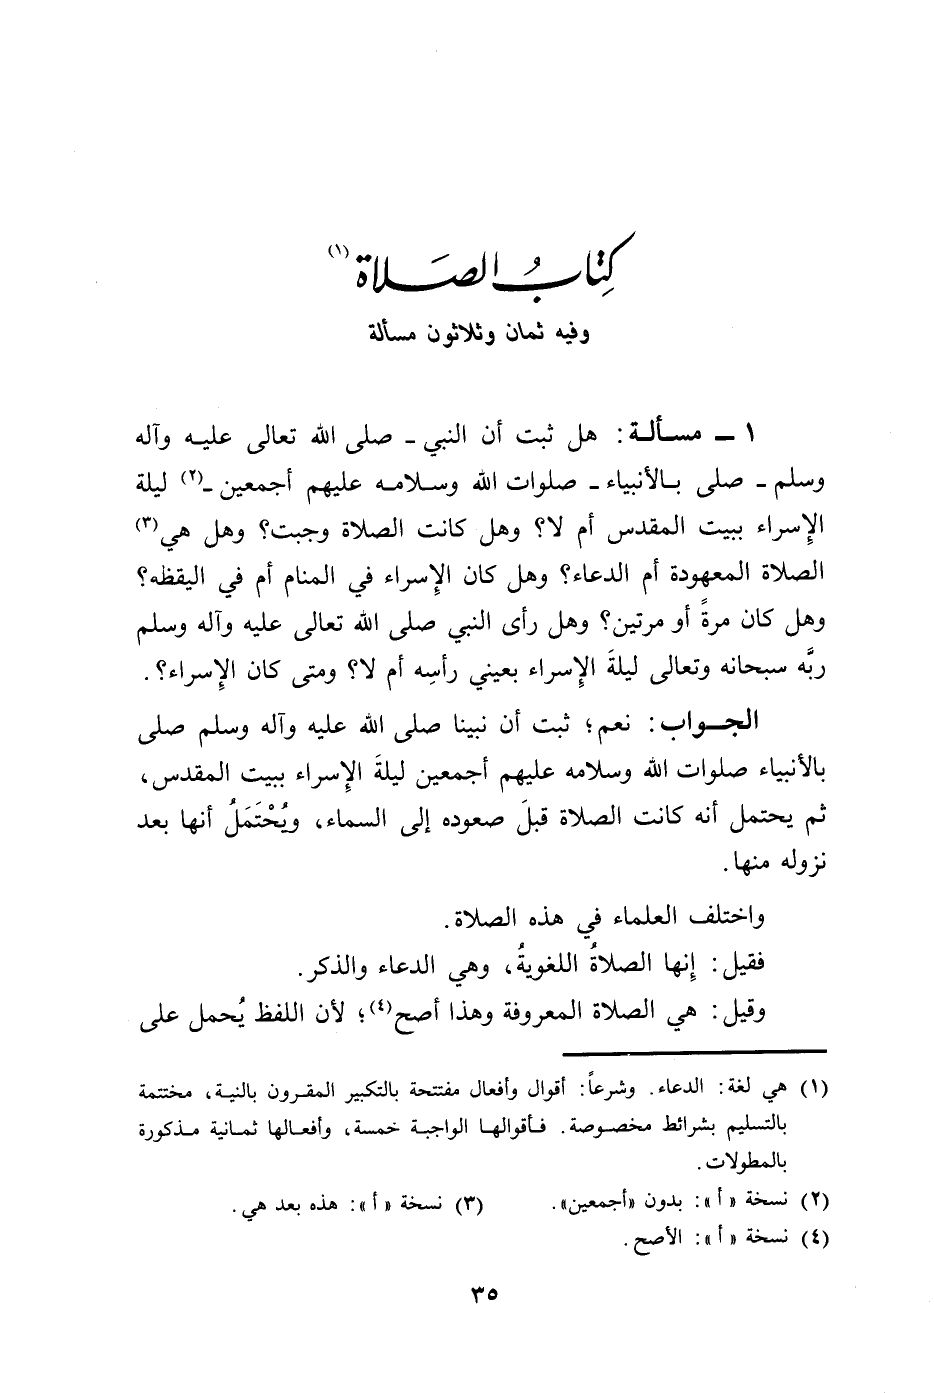 كِتَابُ الصَّلاة (١)
وفيه ثمان وثلاثون مسألة
١ ـ مسـألـة: هل ثبت أن النبي ـ صلى الله تعالى عليـه وآله
وسلم ـ صلى بـالأنبياء ـ صلوات الله وسـلامـه عليهم أجمعين ـ(٢) ليلة
الإسراء ببيت المقدس أم لا؟ وهل كانت الصلاة وجبت؟ وهل هي(٣)
الصلاة المعهودة أم الدعاء؟ وهل كان الإسراء في المنام أم في اليقظه؟
وهل كان مرةً أو مرتين؟ وهل رأى النبي صلى الله تعالى عليه وآله وسلم
ربَّه سبحانه وتعالى ليلةَ الإسراء بعيني رأسِه أم لا؟ ومتى كان الإسراء؟.
الجـواب: نعم؛ ثبت أن نبينا صلى الله عليه وآله وسلم صلى
بالأنبياء صلوات الله وسلامه عليهم أجمعين ليلةَ الإسراء ببيت المقدس،
ثم يحتمل أنه كانت الصلاة قبلَ صعوده إلى السماء، ويُحْتَمَلُ أنها بعد
نزوله منها.
واختلف العلماء في هذه الصلاة.
فقيل: إنها الصلاةُ اللغويةُ، وهي الدعاء والذكر.
وقيل: هي الصلاة المعروفة وهذا أصح(٤)؛ لأن اللفظ يُحمل على
(١) هي لغة: الدعاء. وشرعاً: أقوال وأفعال مفتتحة بالتكبير المقـرون بالنية، مختتمة
بالتسليم بشرائط مخصـوصة. فـأقوالهـا الواجبـة خمسة، وأفعـالها ثمـانية مـذكورة
بالمطولات.
(٢) نسخة «أ»: بدون «أجمعين». (٣) نسخة «أ»: هذه بعد هي.
(٤) نسخة «أ»: الأصح.
٣٥